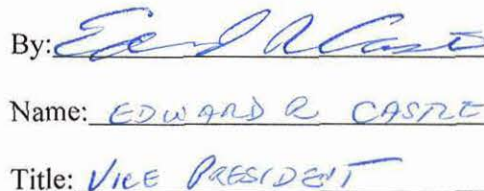 By: Edward R Castle
Name: EDWARD R CASTLE
Title: VICE PRESIDENT